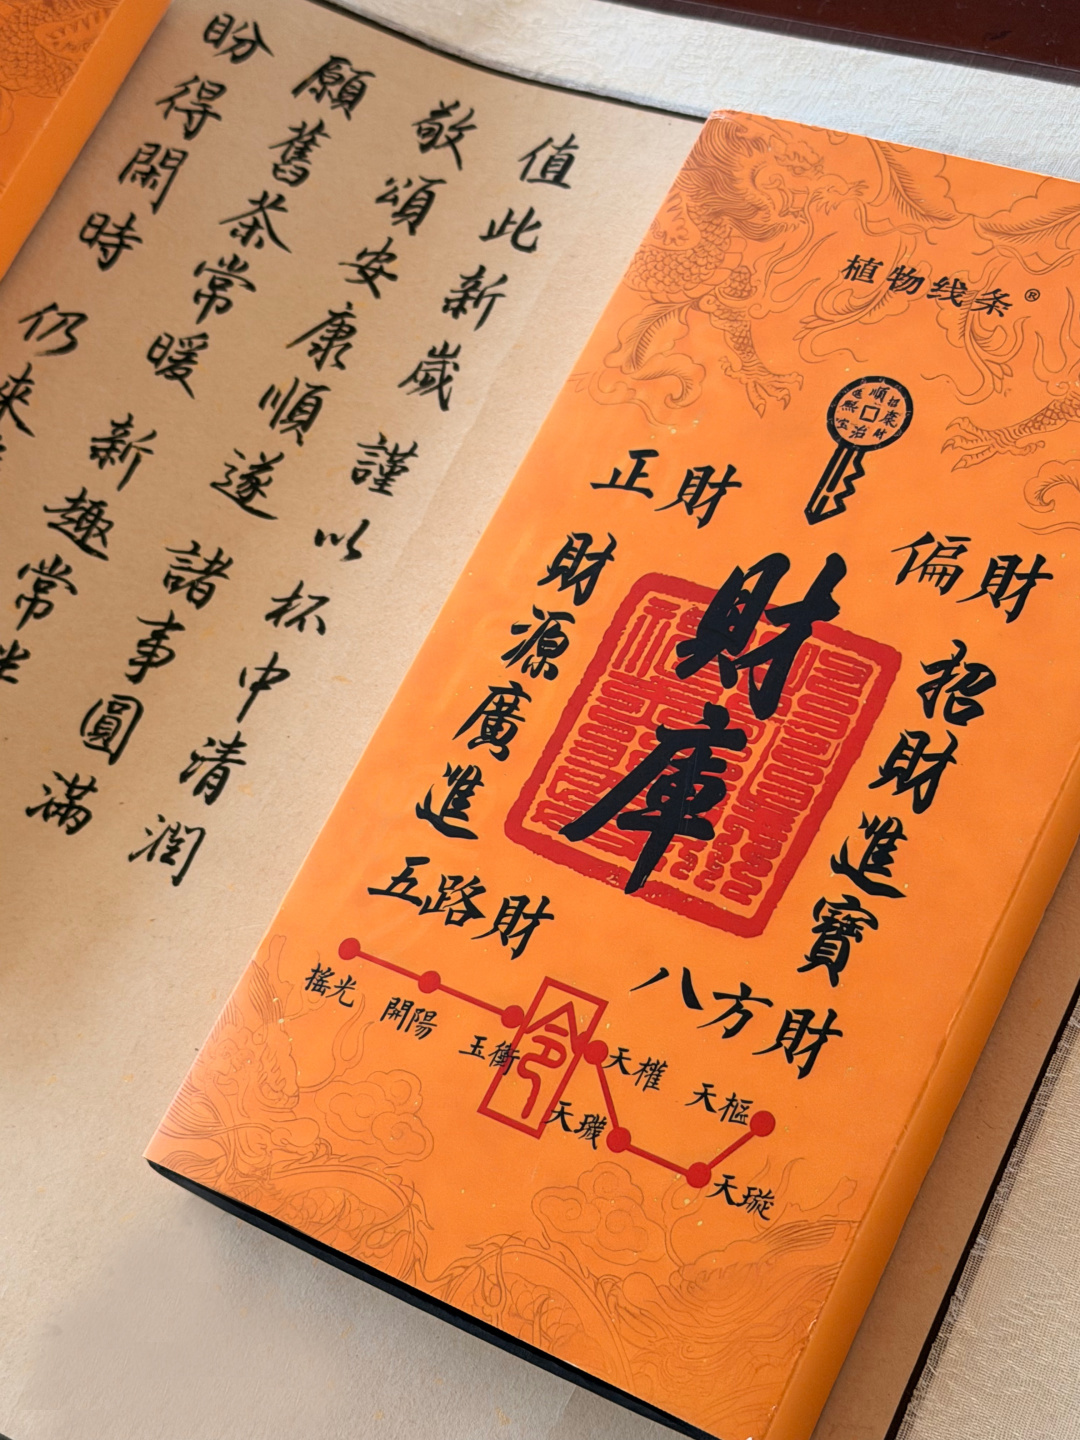 值此新歲 謹以杯中清潤
敬頌安康順遂 諸事圓滿
願舊茶常暖 新趣常
盼得閑時 仍來
植物线条®
正財
偏財
財庫
招財進寶
財源廣進
五路財
八方財
搖光
開陽
玉衡
令
天權
天璣
天樞
天璇